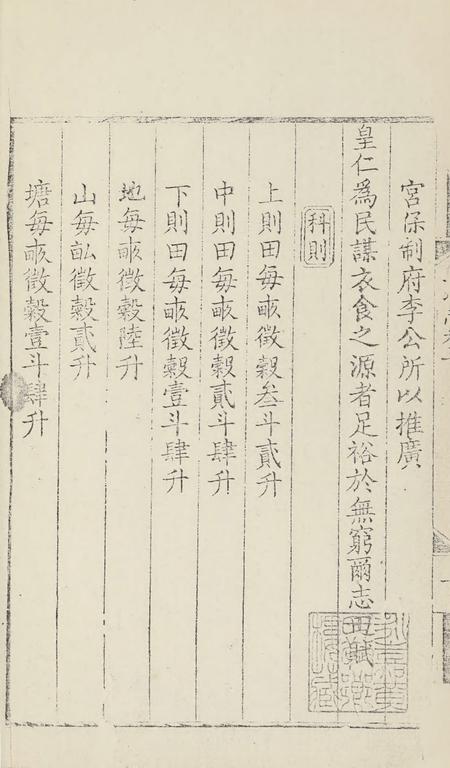 宮保制府李公所以推廣
皇仁為民謀衣食之源者足裕於無窮爾志田賦
科則
上則田每畝徵穀叁斗貳升
中則田每畝徵穀貳斗肆升
下則田每畝徵穀壹斗肆升
地每畝徵穀陸升
山每畝徵穀貳升
塘每畝徵穀壹斗肆升